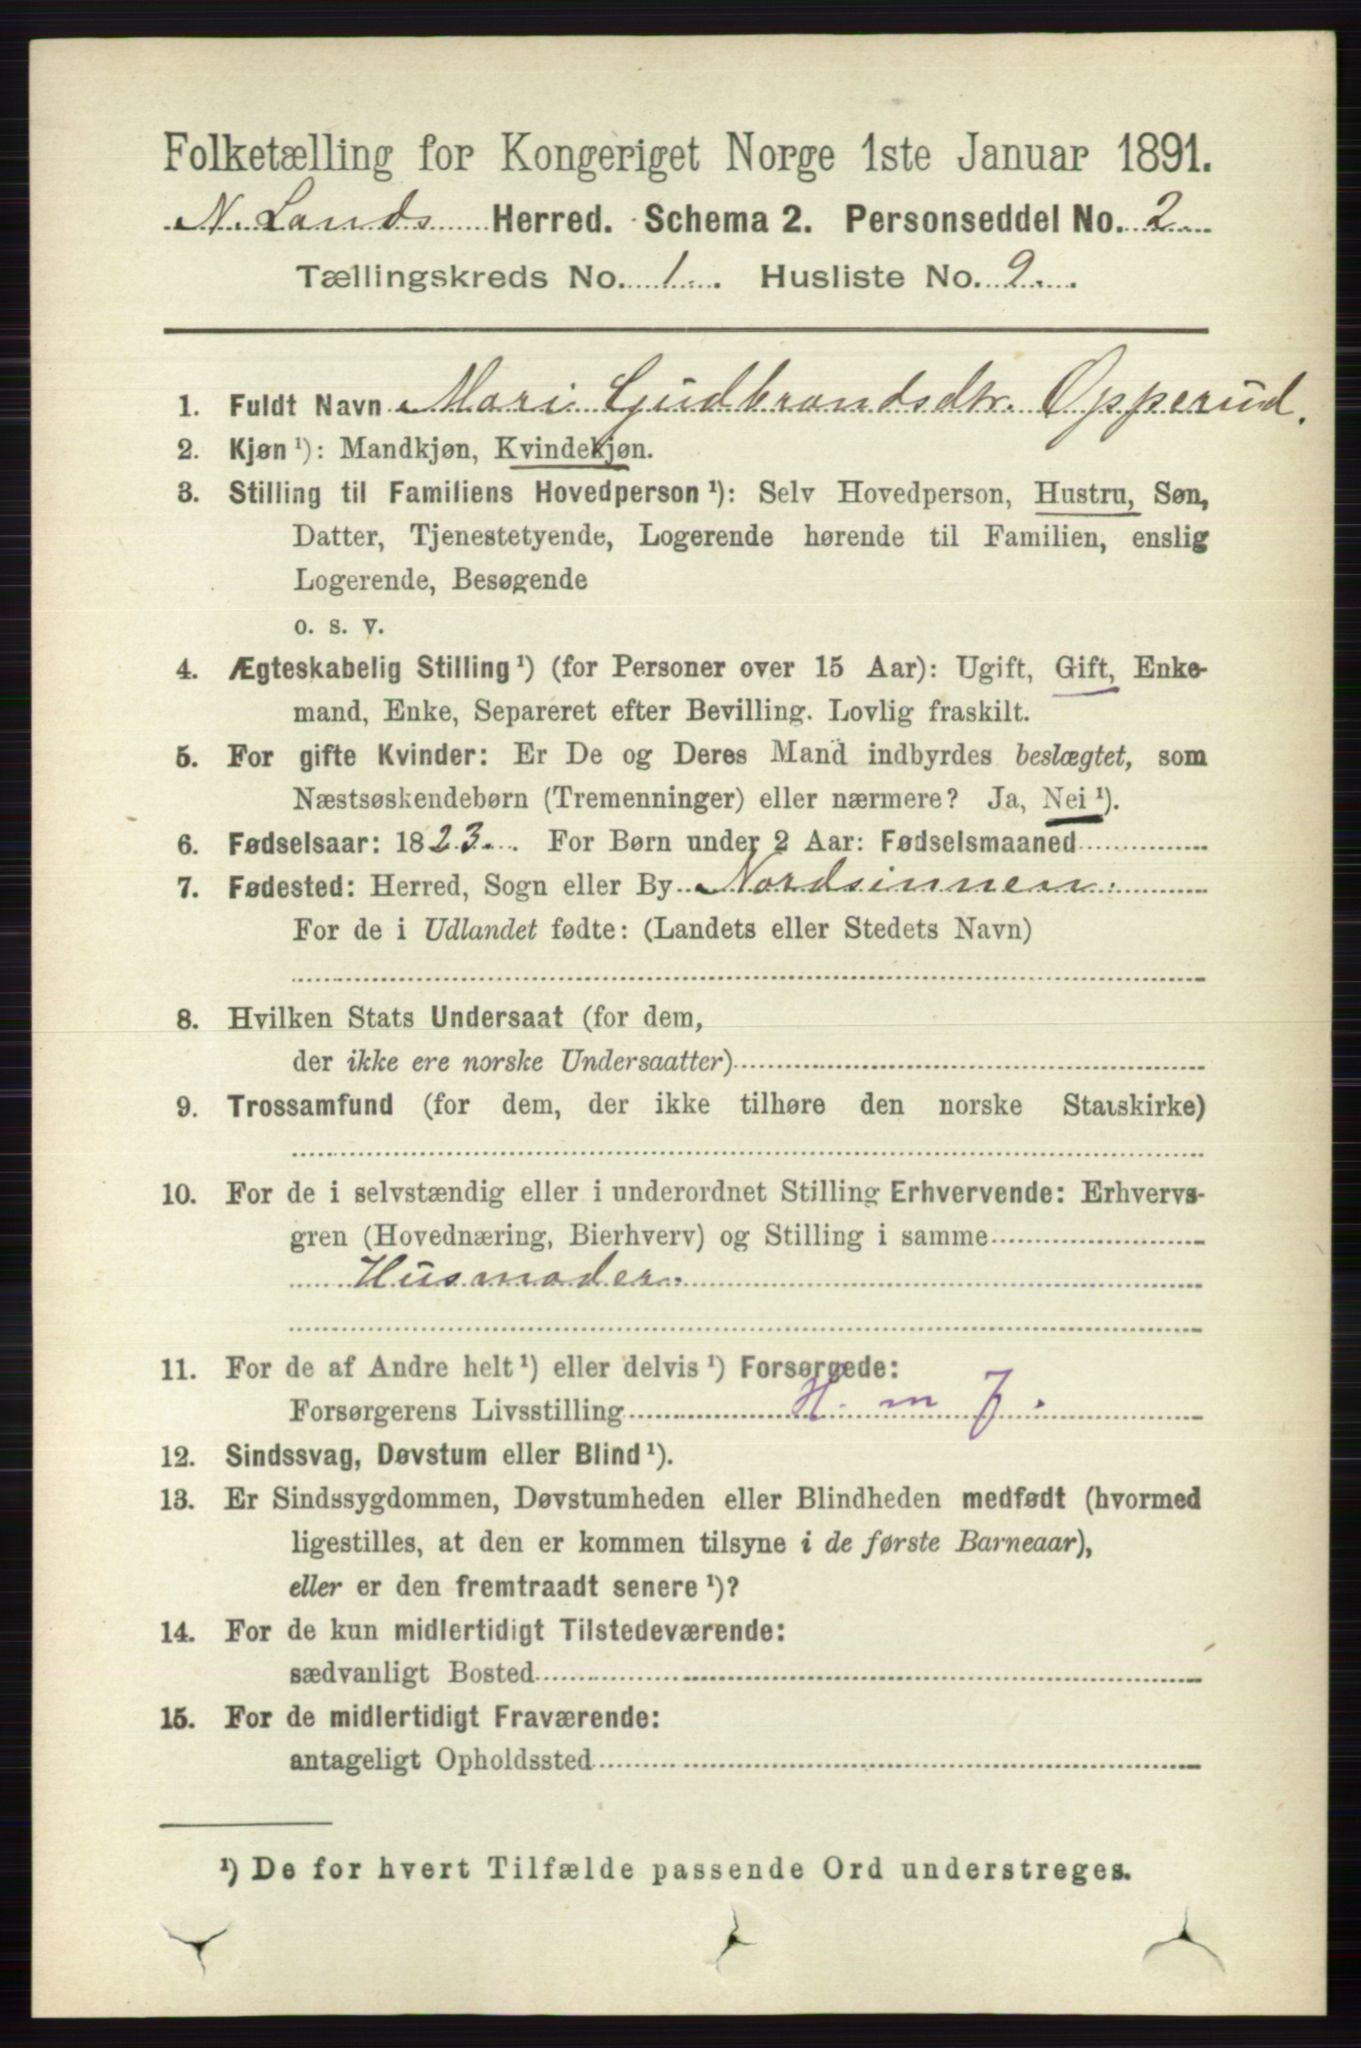 Folketælling for Kongeriget Norge 1ste Januar 1891.
N. Lands Herred. Schema 2. Personseddel No. 2
Tællingskreds No. 1. Husliste No. 2.
1. Fuldt Navn Mari Gudbrandsdtr. Opperud.
2. Kjøn ¹): Mandkjøn, Kvindekjøn.
3. Stilling til Familiens Hovedperson ¹): Selv Hovedperson, Hustru, Søn,
Datter, Tjenestetyende, Logerende hørende til Familien, enslig
Logerende, Besøgende
o. s. v.
4. Ægteskabelig Stilling ¹) (for Personer over 15 Aar): Ugift, Gift, Enke-
mand, Enke, Separeret efter Bevilling. Lovlig fraskilt.
5. For gifte Kvinder: Er De og Deres Mand indbyrdes beslægtet, som
Næstsøskendebørn (Tremenninger) eller nærmere? Ja, Nei ¹).
6. Fødselsaar: 1823. For Børn under 2 Aar: Fødselsmaaned
7. Fødested: Herred, Sogn eller By Nordsinnen.
For de i Udlandet fødte: (Landets eller Stedets Navn)
8. Hvilken Stats Undersaat (for dem,
der ikke ere norske Undersaatter)
9. Trossamfund (for dem, der ikke tilhøre den norske Statskirke)
10. For de i selvstændig eller i underordnet Stilling Erhvervende: Erhvervs-
gren (Hovednæring, Bierhverv) og Stilling i samme
Husmoder.
11. For de af Andre helt ¹) eller delvis ¹) Forsørgede:
Forsørgerens Livsstilling H. m J.
12. Sindssvag, Døvstum eller Blind ¹).
13. Er Sindssygdommen, Døvstumheden eller Blindheden medfødt (hvormed
ligestilles, at den er kommen tilsyne i de første Barneaar),
eller er den fremtraadt senere ¹)?
14. For de kun midlertidigt Tilstedeværende:
sædvanligt Bosted
15. For de midlertidigt Fraværende:
antageligt Opholdssted
¹) De for hvert Tilfælde passende Ord understreges.